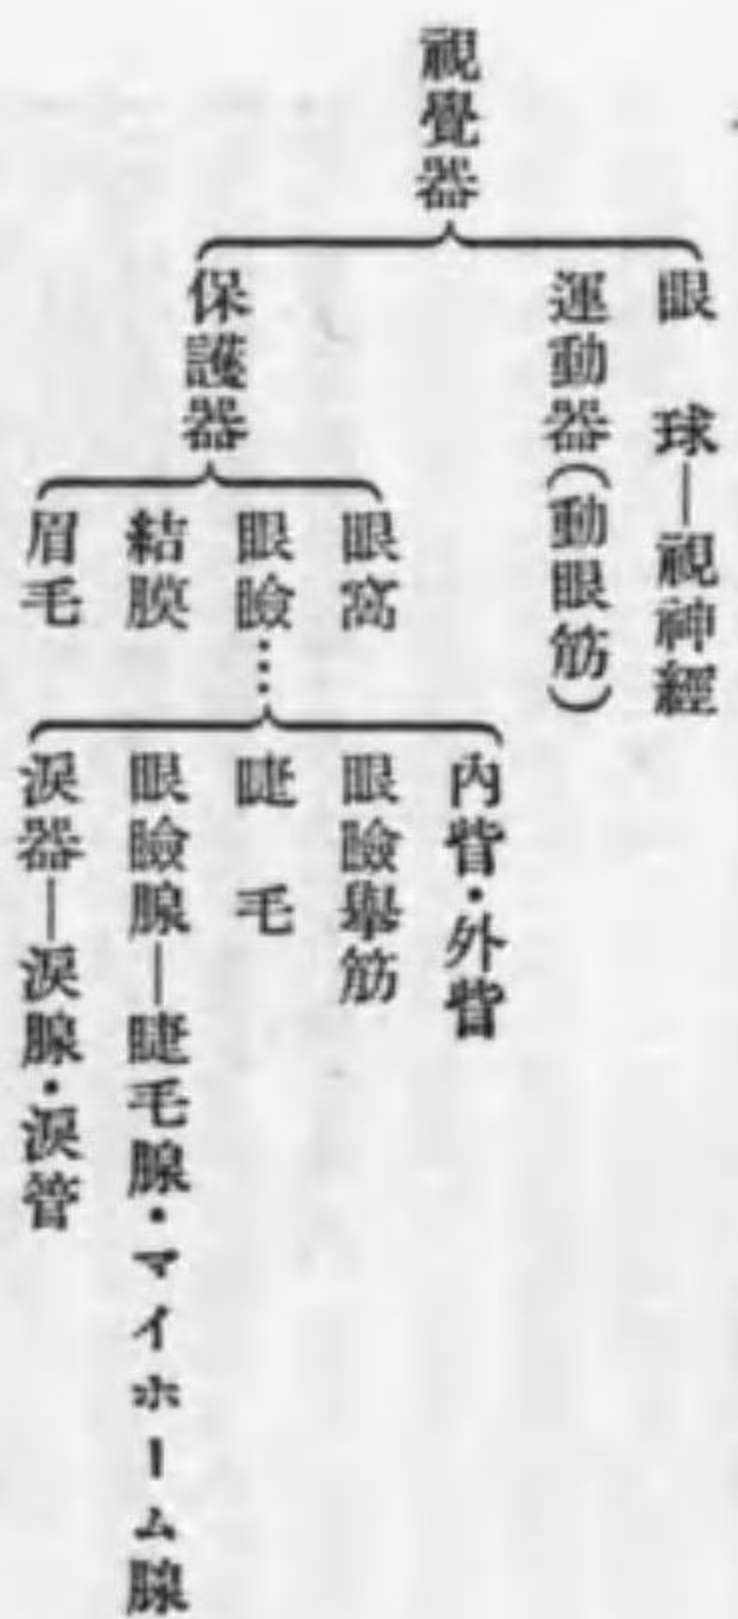 視覺器
眼球―視神經
運動器(動眼筋)
保護器
眼窩
眼瞼…
結膜
眉毛
內眥・外眥
眼瞼擧筋
睫毛
眼瞼腺―睫毛腺・マイホーム腺
淚器―淚腺・淚管